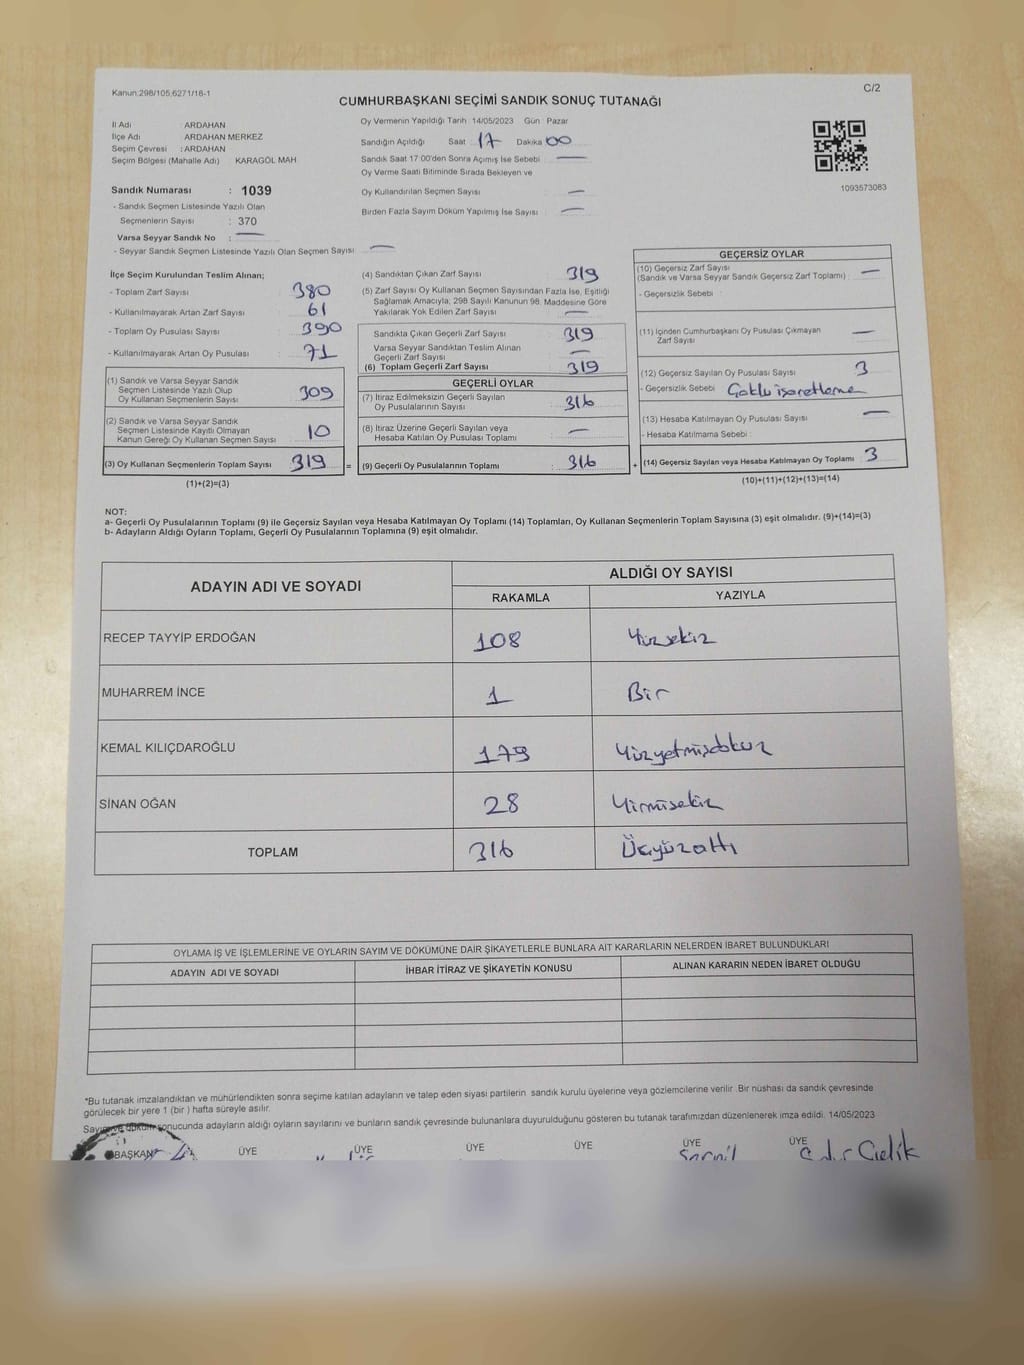 Kanun:298/105,6271/18-1
C/2
CUMHURBAŞKANI SEÇİMİ SANDIK SONUÇ TUTANAĞI
İl Adı : ARDAHAN
İlçe Adı ARDAHAN MERKEZ
Seçim Çevresi : ARDAHAN
Seçim Bölgesi (Mahalle Adı) KARAGÖL MAH
Sandık Numarası : 1039
- Sandık Seçmen Listesinde Yazılı Olan
Seçmenlerin Sayısı : 370
Varsa Seyyar Sandık No : —
- Seyyar Sandık Seçmen Listesinde Yazılı Olan Seçmen Sayısı —
Oy Vermenin Yapıldığı Tarih 14/05/2023 Gün : Pazar
Sandığın Açıldığı Saat 17 Dakika 00
Sandık Saat 17 00'den Sonra Açımış İse Sebebi —
Oy Verme Saati Bitiminde Sırada Bekleyen ve
Oy Kullandırılan Seçmen Sayısı —
Birden Fazla Sayım Döküm Yapılmış İse Sayısı —
1093573083
İlçe Seçim Kurulundan Teslim Alınan;
- Toplam Zarf Sayısı 380
- Kullanılmayarak Artan Zarf Sayısı 61
- Toplam Oy Pusulası Sayısı 390
- Kullanılmayarak Artan Oy Pusulası 71
(1) Sandık ve Varsa Seyyar Sandık
Seçmen Listesinde Yazılı Olup
Oy Kullanan Seçmenlerin Sayısı 309
(2) Sandık ve Varsa Seyyar Sandık
Seçmen Listesinde Kayıtlı Olmayan
Kanun Gereği Oy Kullanan Seçmen Sayısı 10
(3) Oy Kullanan Seçmenlerin Toplam Sayısı 319 =
(1)+(2)=(3)
(4) Sandıktan Çıkan Zarf Sayısı 319
(5) Zarf Sayısı Oy Kullanan Seçmen Sayısından Fazla İse, Eşitliği
Sağlamak Amacıyla, 298 Sayılı Kanunun 98. Maddesine Göre
Yakılarak Yok Edilen Zarf Sayısı —
Sandıkta Çıkan Geçerli Zarf Sayısı 319
Varsa Seyyar Sandıktan Teslim Alınan
Geçerli Zarf Sayısı —
(6) Toplam Geçerli Zarf Sayısı 319
GEÇERLİ OYLAR
(7) İtiraz Edilmeksizin Geçerli Sayılan
Oy Pusulalarının Sayısı 316
(8) İtiraz Üzerine Geçerli Sayılan veya
Hesaba Katılan Oy Pusulası Toplamı —
(9) Geçerli Oy Pusulalarının Toplamı : 316 +
GEÇERSİZ OYLAR
(10) Geçersiz Zarf Sayısı
(Sandık ve Varsa Seyyar Sandık Geçersiz Zarf Toplamı) : —
- Geçersizlik Sebebi :
(11) İçinden Cumhurbaşkanı Oy Pusulası Çıkmayan
Zarf Sayısı —
(12) Geçersiz Sayılan Oy Pusulası Sayısı 3
- Geçersizlik Sebebi : Çoklu işaretleme
(13) Hesaba Katılmayan Oy Pusulası Sayısı —
- Hesaba Katılmama Sebebi :
(14) Geçersiz Sayılan veya Hesaba Katılmayan Oy Toplamı 3
(10)+(11)+(12)+(13)=(14)
NOT:
a- Geçerli Oy Pusulalarının Toplamı (9) ile Geçersiz Sayılan veya Hesaba Katılmayan Oy Toplamı (14) Toplamları, Oy Kullanan Seçmenlerin Toplam Sayısına (3) eşit olmalıdır. (9)+(14)=(3)
b- Adayların Aldığı Oyların Toplamı, Geçerli Oy Pusulalarının Toplamına (9) eşit olmalıdır.
ADAYIN ADI VE SOYADI ALDIĞI OY SAYISI
RAKAMLA YAZIYLA
RECEP TAYYİP ERDOĞAN 108 Yüzsekiz
MUHARREM İNCE 1 Bir
KEMAL KILIÇDAROĞLU 179 Yüzyetmişdokuz
SİNAN OĞAN 28 Yirmisekiz
TOPLAM 316 Üçyüzaltı
OYLAMA İŞ VE İŞLEMLERİNE VE OYLARIN SAYIM VE DÖKÜMÜNE DAİR ŞİKAYETLERLE BUNLARA AİT KARARLARIN NELERDEN İBARET BULUNDUKLARI
ADAYIN ADI VE SOYADI İHBAR İTİRAZ VE ŞİKAYETİN KONUSU ALINAN KARARIN NEDEN İBARET OLDUĞU
*Bu tutanak imzalandıktan ve mühürlendikten sonra seçime katılan adayların ve talep eden siyasi partilerin sandık kurulu üyelerine veya gözlemcilerine verilir. Bir nüshası da sandık çevresinde
görülecek bir yere 1 (bir) hafta süreyle asılır.
Sayım ve döküm sonucunda adayların aldığı oyların sayılarını ve bunların sandık çevresinde bulunanlara duyurulduğunu gösteren bu tutanak tarafımızdan düzenlenerek imza edildi. 14/05/2023
BAŞKAN ÜYE ÜYE ÜYE ÜYE ÜYE ÜYE
Çelik